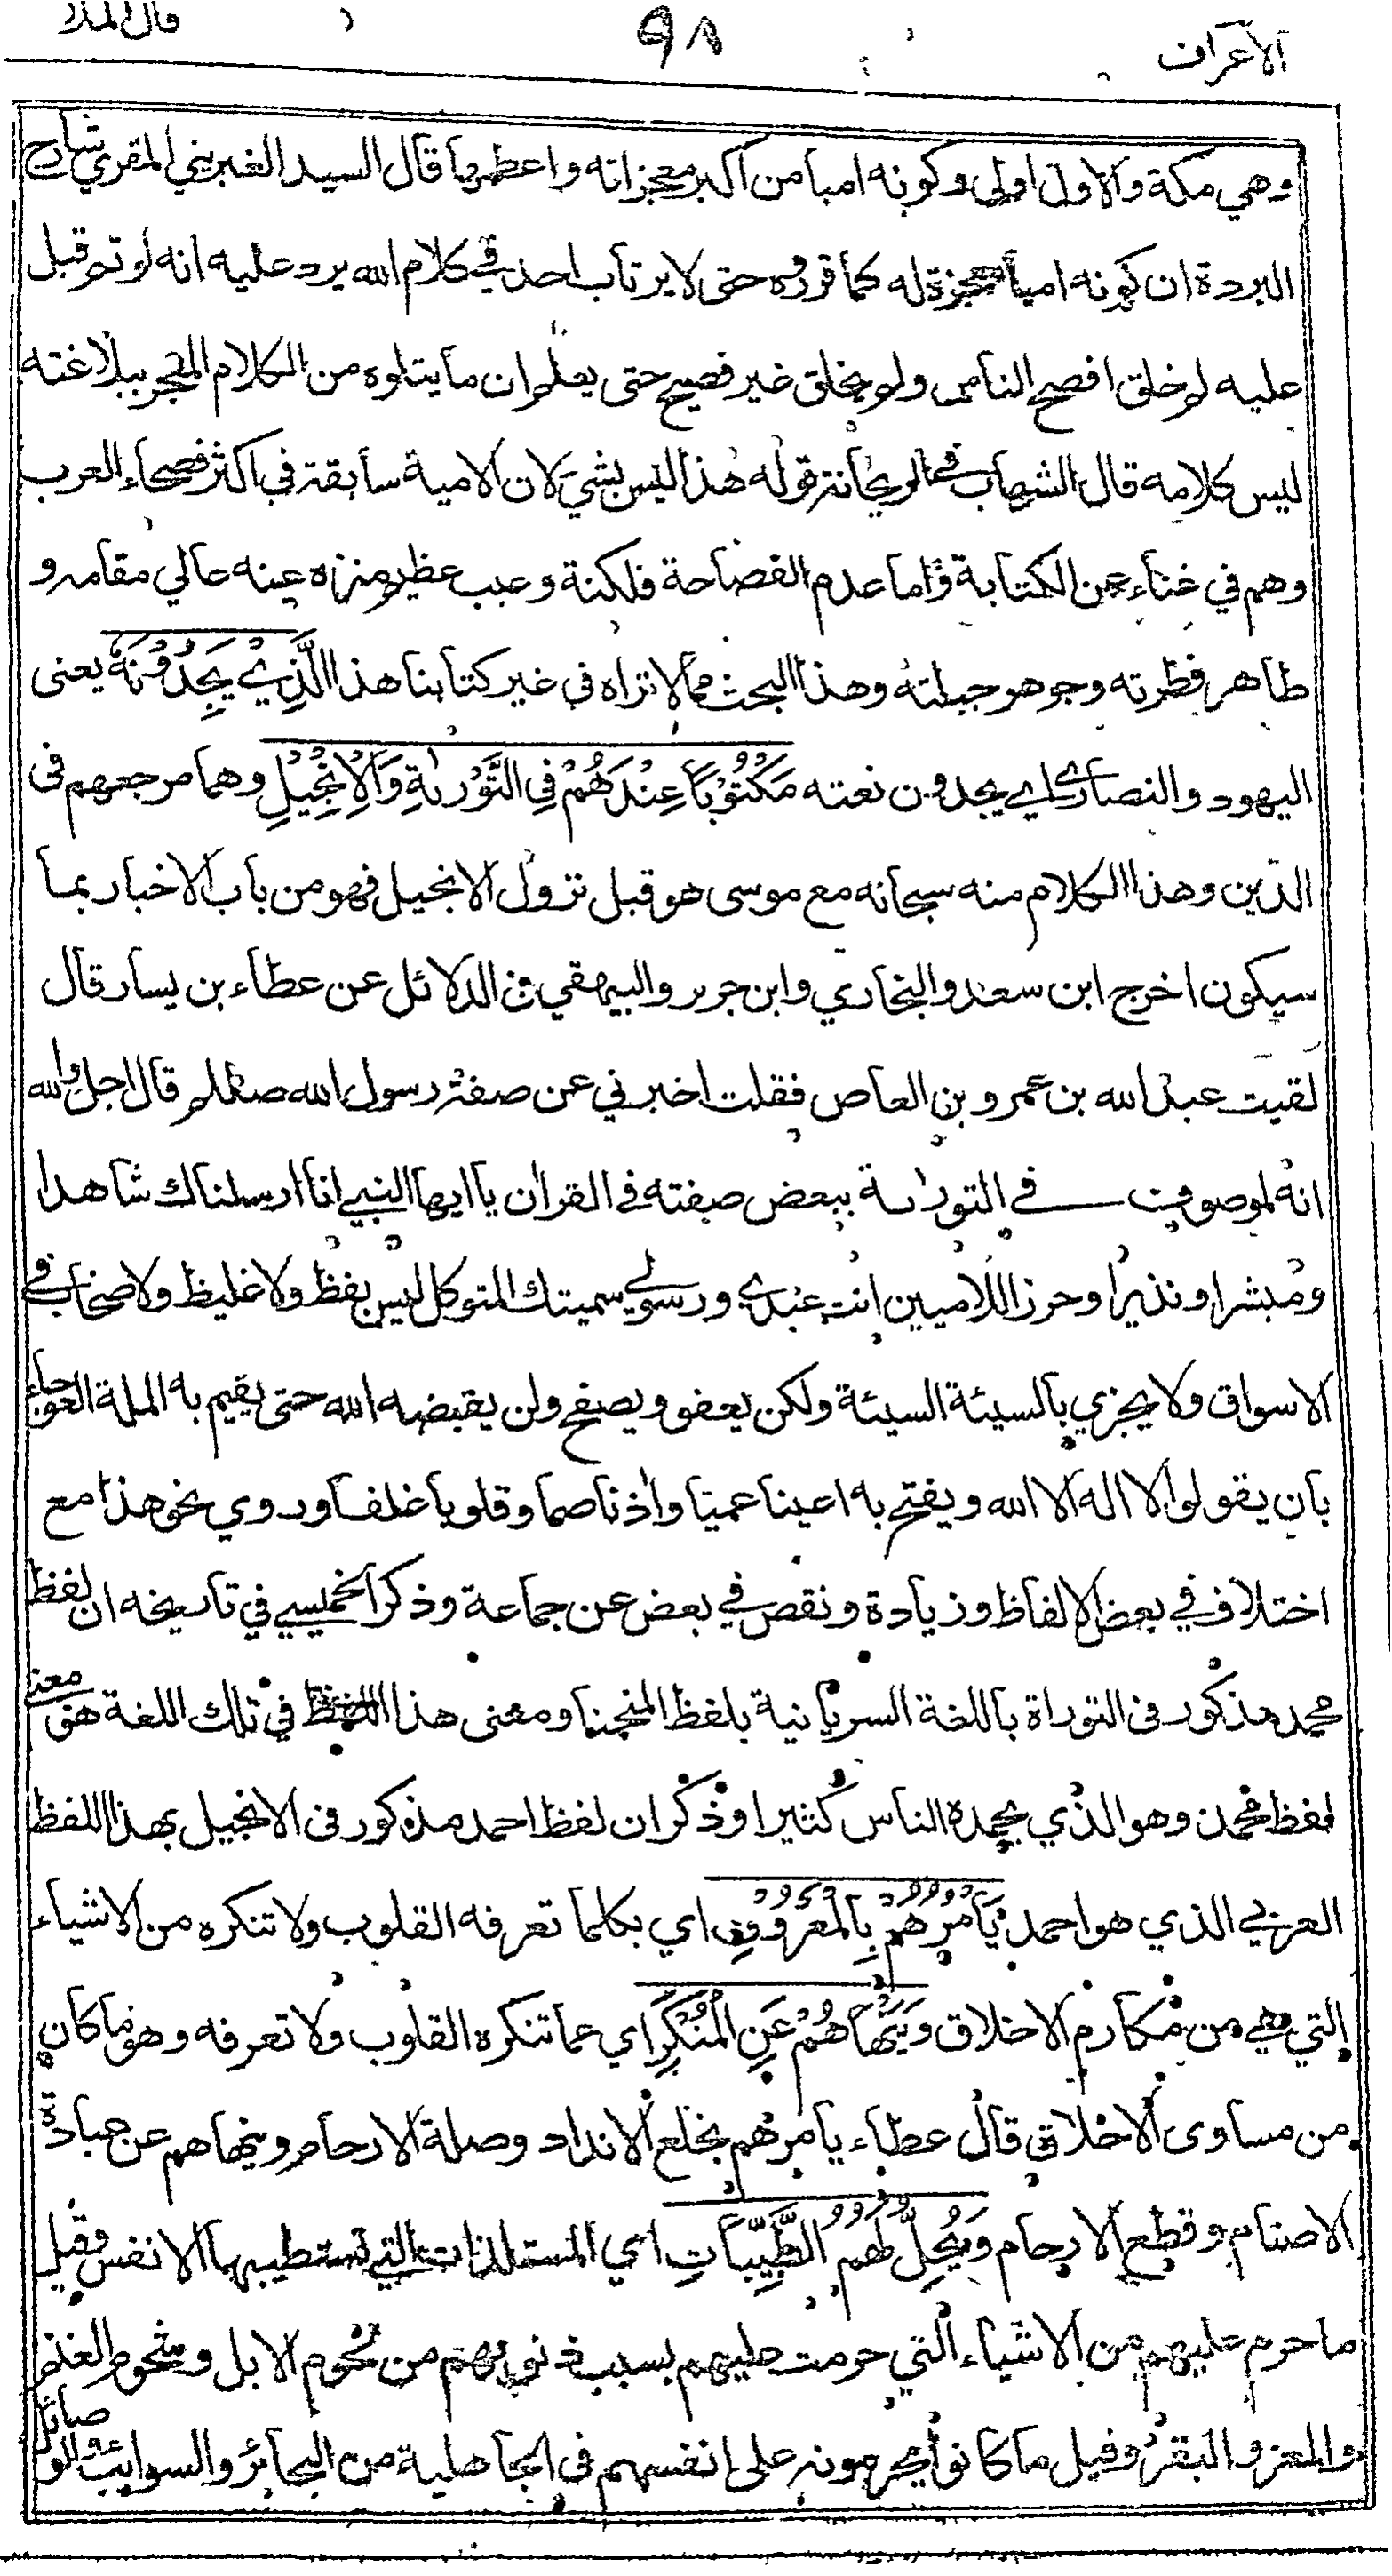 الاعراف ٩٨ قال الملأ
وهي مكة والاول اولى وكونه اميا من اكبر معجزاته واعظمها قال السيد الغبريني المقري شارح
البردة ان كونه اميا معجزة له كما قرروه حتى لا يرتاب احد في كلام الله يرد عليه انه لو تم قبل
عليه لم خلق افصح الناس ولم يخلق غير فصيح حتى يعلم ان ما يتلوه من الكلام المعجز ببلاغته
ليس كلامه قال الشهاب في الريحانة قوله هذا ليس بشيء لان الامية سابقة في اكثر فصحاء العرب
وهم في غناء عن الكتابة واما عدم الفصاحة فلكنة وعيب عظيم منزه عنه عالي مقامه و
طاهر فطرته وجوهر جبلته وهذا البحث مما لا تراه في غير كتابنا هذا الَّذِيْ يَجِدُوْنَهٗ يعنى
اليهود والنصارى اي يجدون نعته مَكْتُوْبًا عِنْدَهُمْ فِي التَّوْرٰىةِ وَالْاِنْجِيْلِ وهما مرجعهم فى
الدين وهذا الكلام منه سبحانه مع موسى هو قبل نزول الانجيل فهو من باب الاخبار بما
سيكون اخرج ابن سعد والبخاري وابن جرير والبيهقي في الدلائل عن عطاء بن يسار قال
لقيت عبد الله بن عمرو بن العاص فقلت اخبرني عن صفة رسول الله صللم قال اجل والله
انه لموصوف في التوراىة ببعض صفته في القران يا ايها النبي انا ارسلناك شاهدا
ومبشرا ونذيرا وحرزا للاميين انت عبدي ورسولي سميتك المتوكل ليس بفظ ولا غليظ ولا صخاب في
الاسواق ولا يجزي بالسيئة السيئة ولكن يعفو ويصفح ولن يقبضه الله حتى يقيم به الملة العوجاء
بان يقولوا لا اله الا الله ويفتح به اعينا عميا واذنا صما وقلوبا غلفا وروي نحو هذا مع
اختلاف في بعض الالفاظ وزيادة ونقص في بعض عن جماعة وذكر الخميسي في تاريخه ان لفظ
محمد مذكور فى التوراة باللغة السريانية بلفظ المنحمنا ومعنى هذا اللفظ في تلك اللغة هو معنى
لفظ محمد وهو الذي يحمده الناس كثيرا وذكر ان لفظ احمد مذكور فى الانجيل بهذا اللفظ
العربي الذي هو احمد يَأْمُرُهُمْ بِالْمَعْرُوْفِ اي بكلما تعرفه القلوب ولا تنكره من الاشياء
التي هي من مكارم الاخلاق وَيَنْهَاهُمْ عَنِ الْمُنْكَرِ اي عما تنكره القلوب ولا تعرفه وهو ما كان
من مساوى الاخلاق قال عطاء يامرهم بخلع الانداد وصلة الارحام وينهاهم عن عبادة
الاصنام وقطع الارحام وَيُحِلُّ لَهُمُ الطَّيِّبَاتِ اي المستلذات التي تستطيبها الانفس وقيل
ما حرم عليهم من الاشياء التي حرمت عليهم بسبب ذنوبهم من لحوم الابل وشحوم الغنم
والمعز والبقر وقيل ما كانوا يحرمونه على انفسهم فى الجاهلية من البحائر والسوائب والوصائل